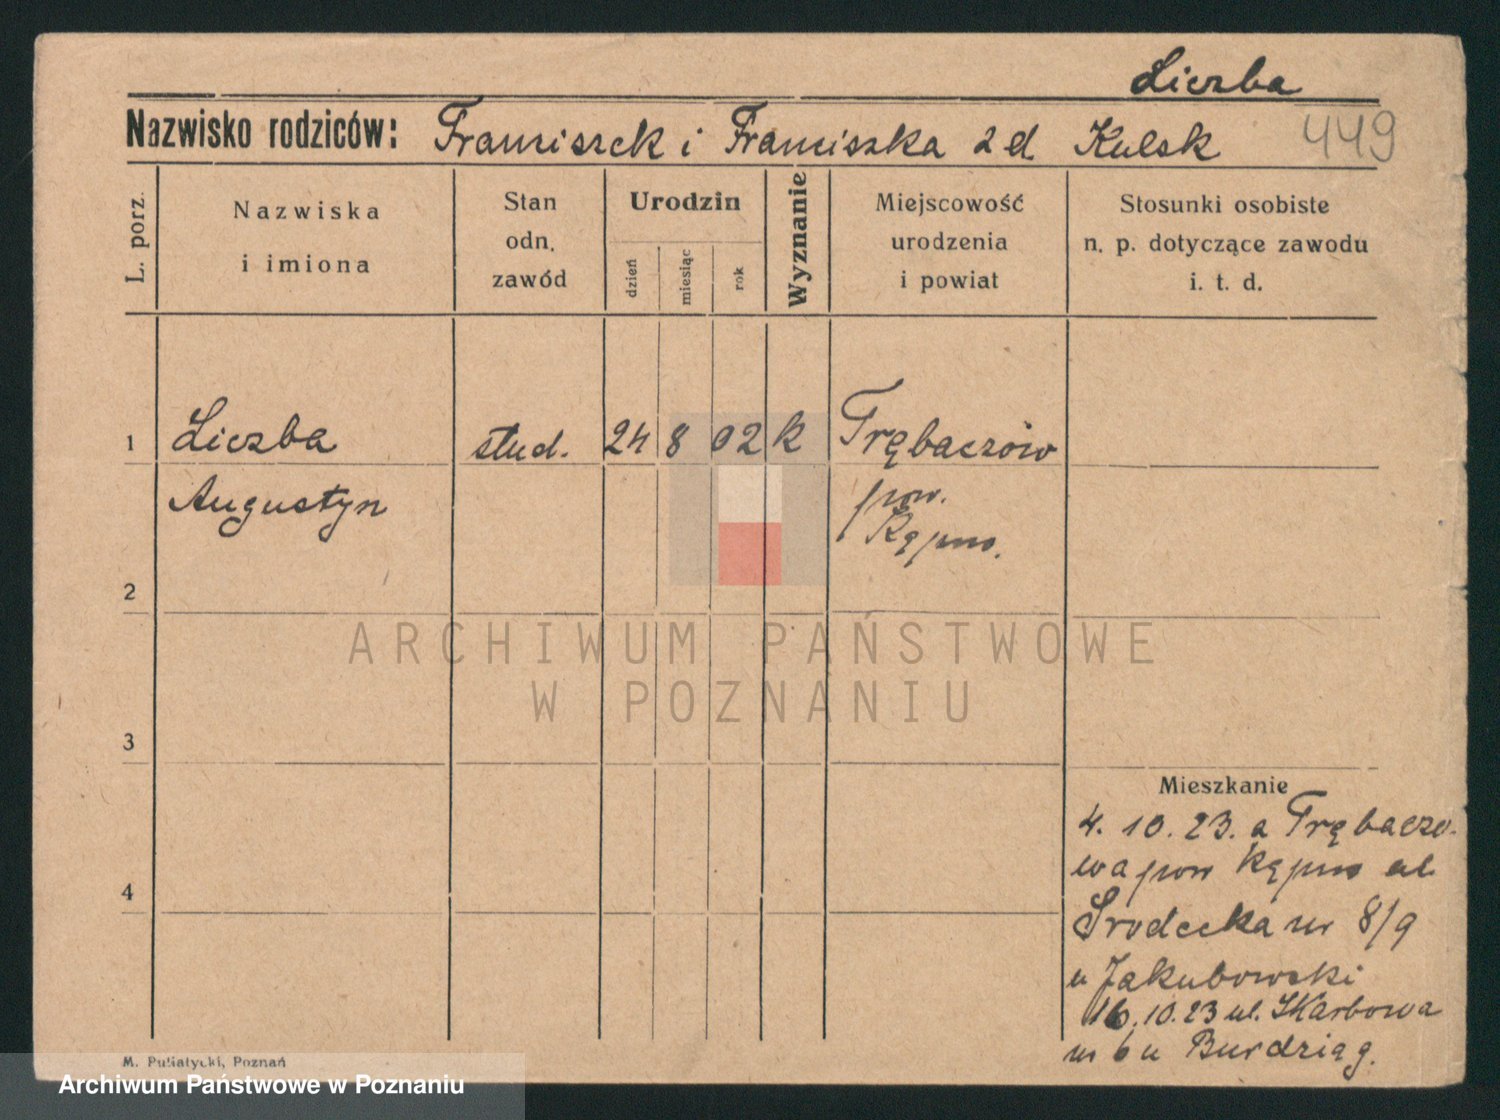 Liczba
Nazwisko rodziców: Franciszek i Franciszka z d Kulsk 449
L. porz.
Nazwiska
i imiona
Stan
odn.
zawód
Urodzin
dzień
miesiąc
rok
Wyznanie
Miejscowość
urodzenia
i powiat
Stosunki osobiste
n. p. dotyczące zawodu
i. t. d.
1 Liczba stud. 24 8 02 k Trębaczów
Augustyn pow.
Kępno.
2
3
4
Mieszkanie
4. 10. 23. a Trębaczo-
wa pow Kępno ul
Srodecka nr 8/9
u Jakubowski
16.10.23 ul. Skarbowa
nr 6 u Burdziąg.
ARCHIWUM PAŃSTWOWE
W POZNANIU
M. Pusiatycki, Poznań
Archiwum Państwowe w Poznaniu